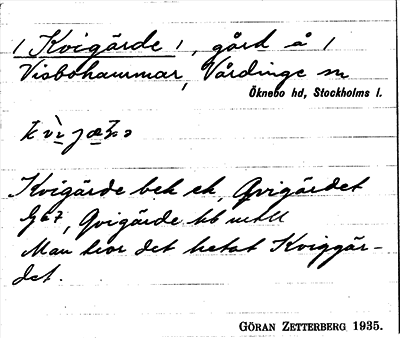 / Kvigärde /, gård å /
Visbohammar, Vårdinge sn
Öknebo hd, Stockholms l.
Kvigärde bek ek, Qvigärdet
Qvigärde
Man tror det hetat Kviggär-
det.
GÖRAN ZETTERBERG 1935.